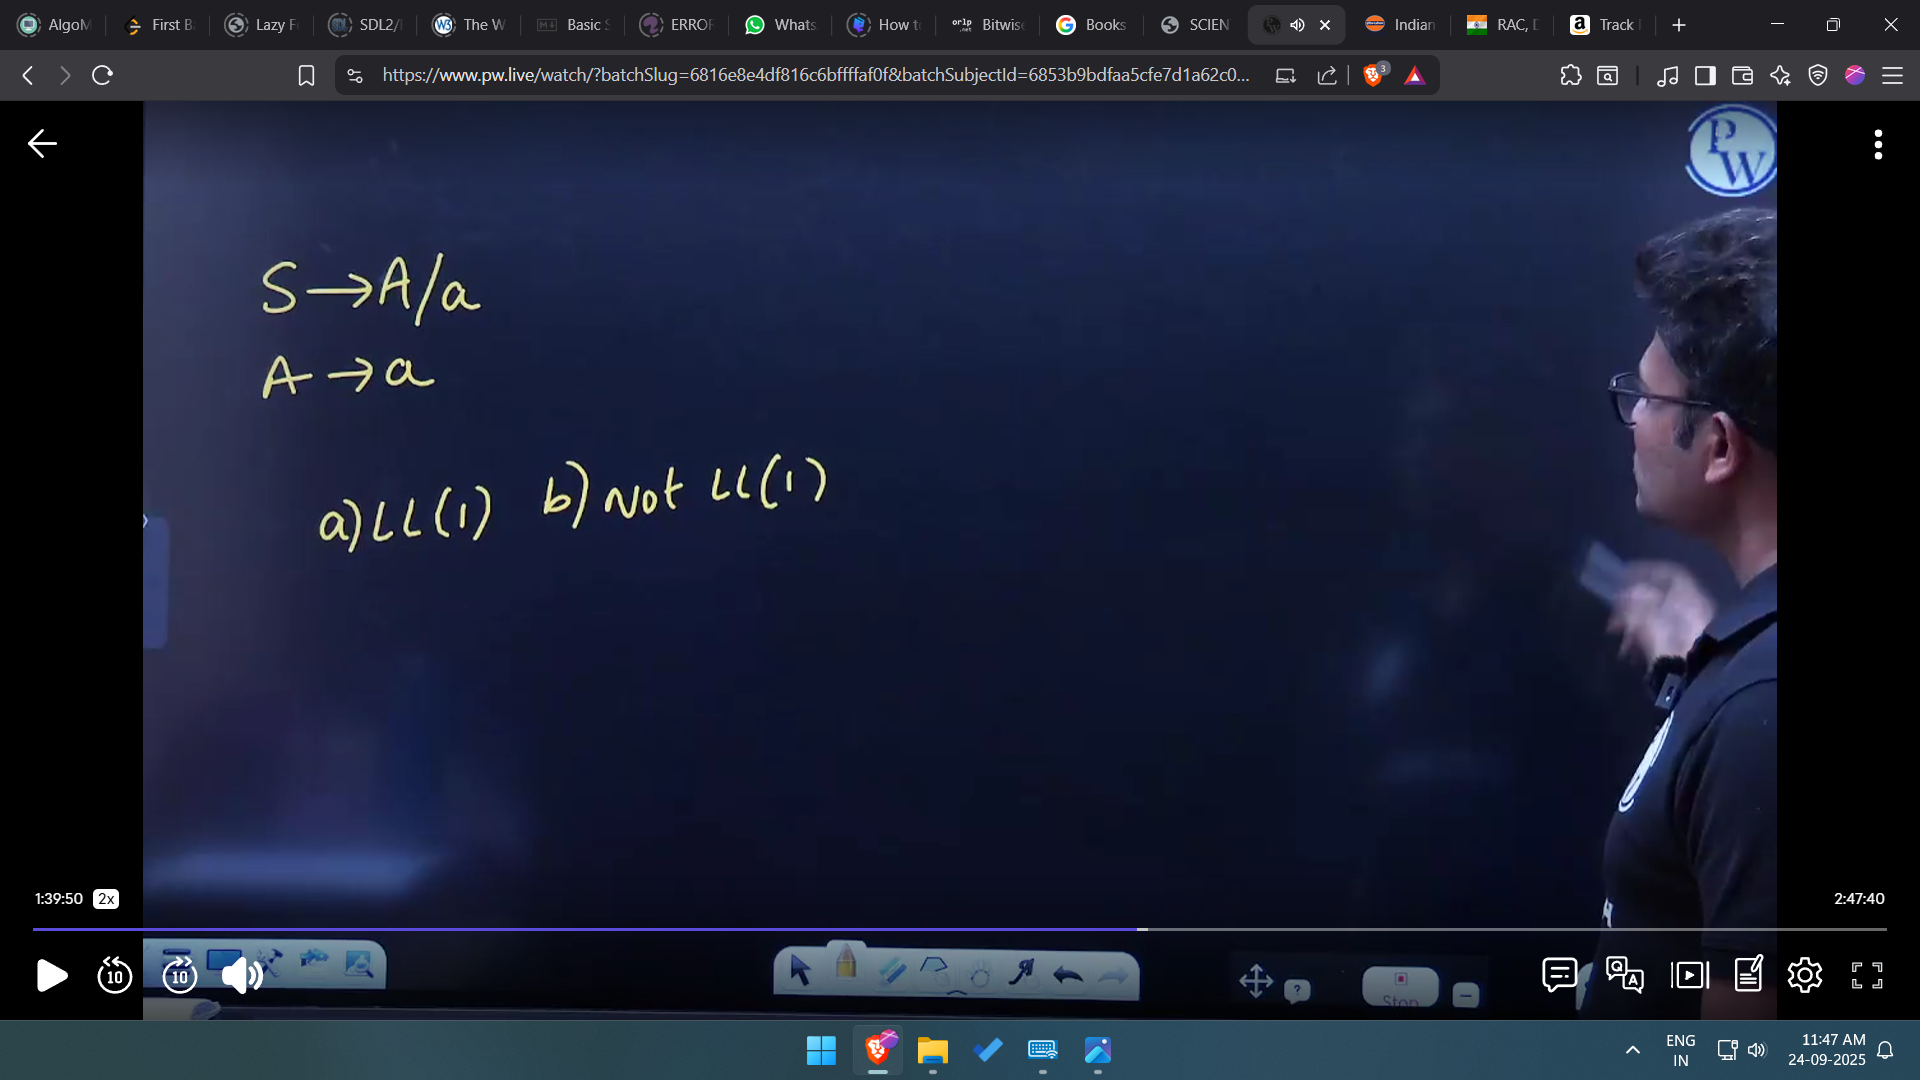 AlgoM
First B
Lazy F
SDL2/
The W
Basic S
ERROR
Whats
How t
orlp .net Bitwise
Books
SCIEN
Indian
RAC, D
Track
https://www.pw.live/watch/?batchSlug=6816e8e4df816c6bffffaf0f&batchSubjectId=6853b9bdfaa5cfe7d1a62c0...
3
PW
S → A/a
A → a
a) LL(1) b) Not LL(1)
1:39:50 2x
2:47:40
10
10
Stop
ENG
IN
11:47 AM
24-09-2025